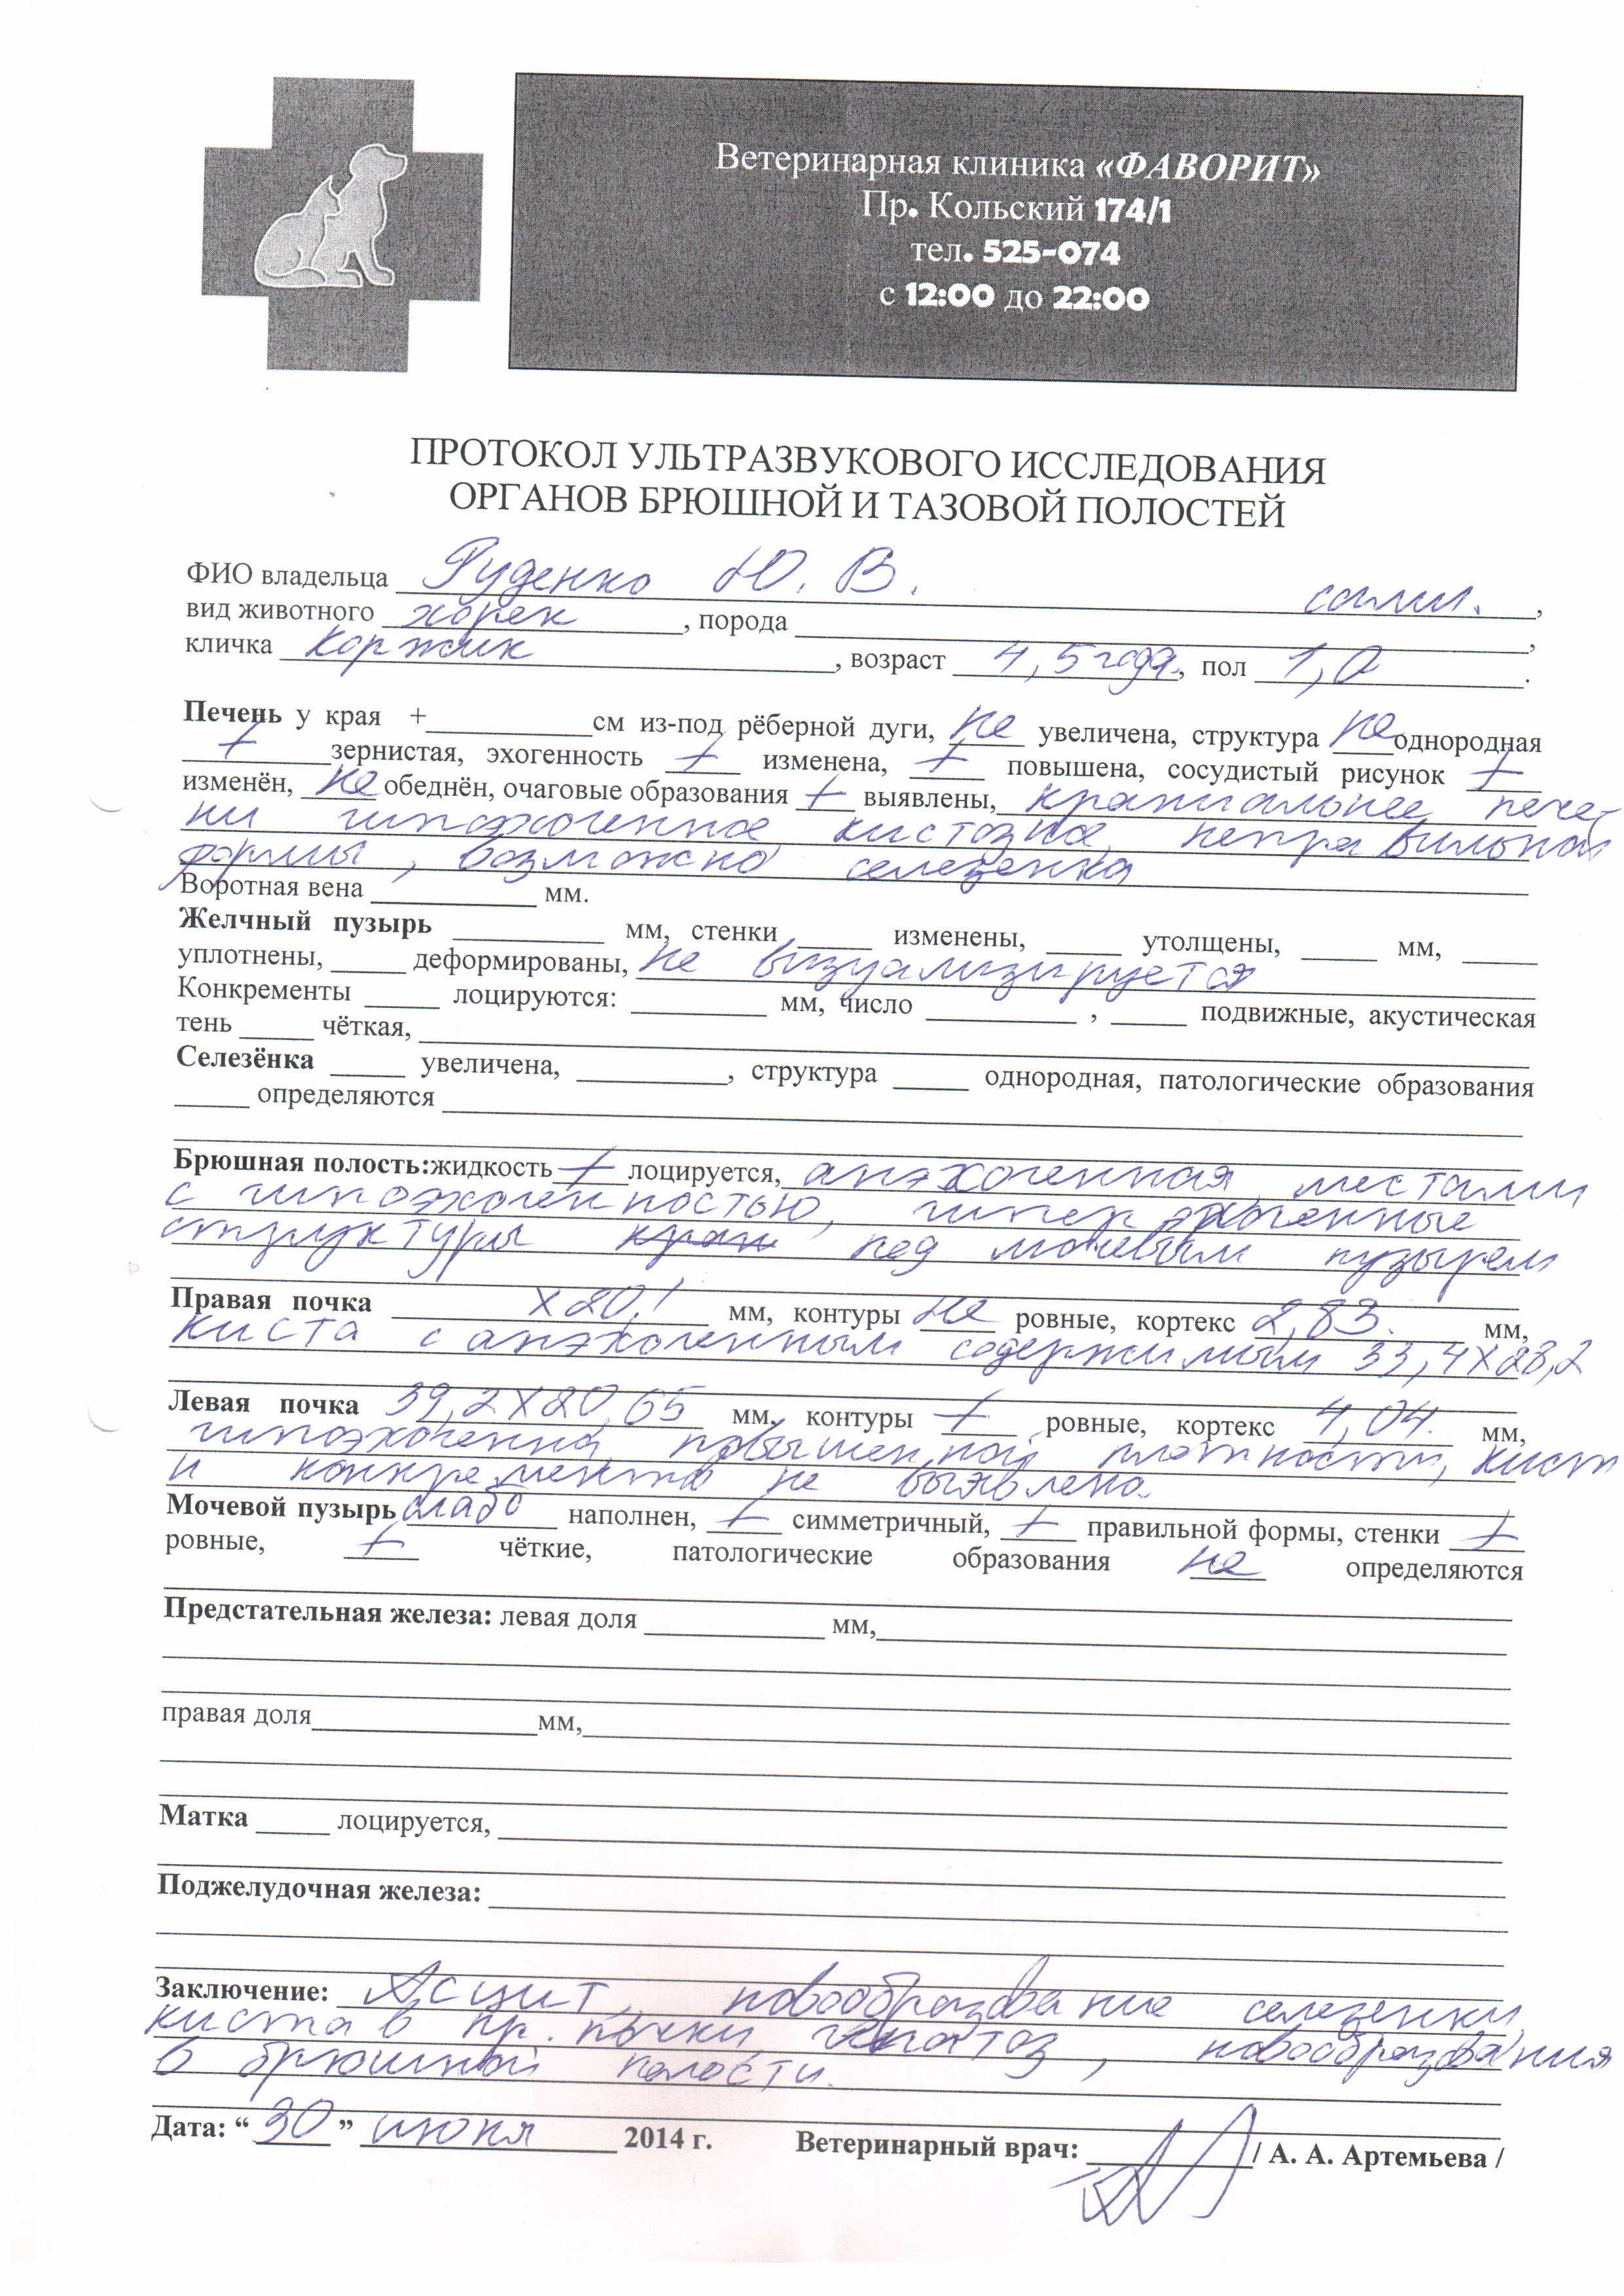 Ветеринарная клиника «ФАВОРИТ»
Пр. Кольский 174/1
тел. 525-074
с 12:00 до 22:00
ПРОТОКОЛ УЛЬТРАЗВУКОВОГО ИССЛЕДОВАНИЯ
ОРГАНОВ БРЮШНОЙ И ТАЗОВОЙ ПОЛОСТЕЙ
ФИО владельца Руденко Ю. В.
вид животного хорек, порода ,
кличка Коржик, возраст 4,5 года, пол 1,0.
Печень у края + см из-под рёберной дуги, не увеличена, структура не однородная
+ зернистая, эхогенность + изменена, + повышена, сосудистый рисунок +
изменён, не обеднён, очаговые образования + выявлены, краниальнее пече-
ни гипоэхогенное кистозное, неправильной
формы, возможно селезенка
Воротная вена мм.
Желчный пузырь мм, стенки изменены, утолщены, мм,
уплотнены, деформированы, не визуализируется
Конкременты лоцируются: мм, число , подвижные, акустическая
тень чёткая,
Селезёнка увеличена, , структура однородная, патологические образования
определяются
Брюшная полость: жидкость + лоцируется, анэхогенная, местами
с гипоэхогенностью, гиперэхогенные
структуры под мочевым пузырем
Правая почка х20,1 мм, контуры не ровные, кортекс 2,83. мм,
киста с анэхогенным содержимым 33,4х28,2
Левая почка 39,2х20,65 мм, контуры + ровные, кортекс 4,04. мм,
гипоэхогенна, повышенной плотности, кист
и конкрементов не выявлено.
Мочевой пузырь слабо наполнен, + симметричный, + правильной формы, стенки +
ровные, + чёткие, патологические образования не определяются
Предстательная железа: левая доля мм,
правая доля мм,
Матка лоцируется,
Поджелудочная железа:
Заключение: Асцит, новообразование селезенки
киста в пр. почки, гепатоз, новообразования
в брюшной полости.
Дата: “ 30 ” июня 2014 г. Ветеринарный врач: / А. А. Артемьева /